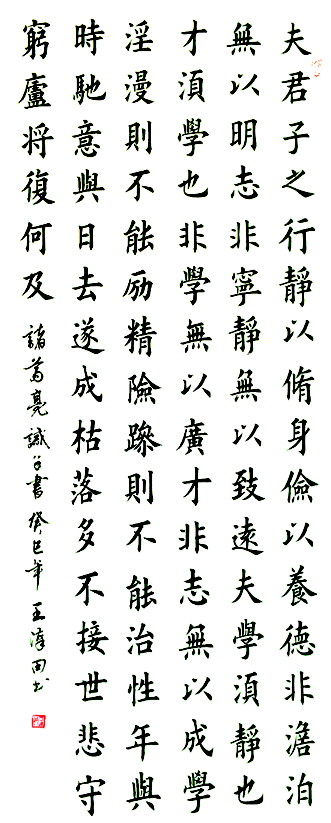 夫君子之行靜以脩身儉以養德非澹泊
無以明志非寧靜無以致遠夫學湏靜也
才湏學也非學無以廣才非志無以成學
淫漫則不能励精險躁則不能治性年與
時馳意與日去遂成枯落多不接世悲守
窮廬将復何及 諸葛亮誡子書 癸巳年 王海田书